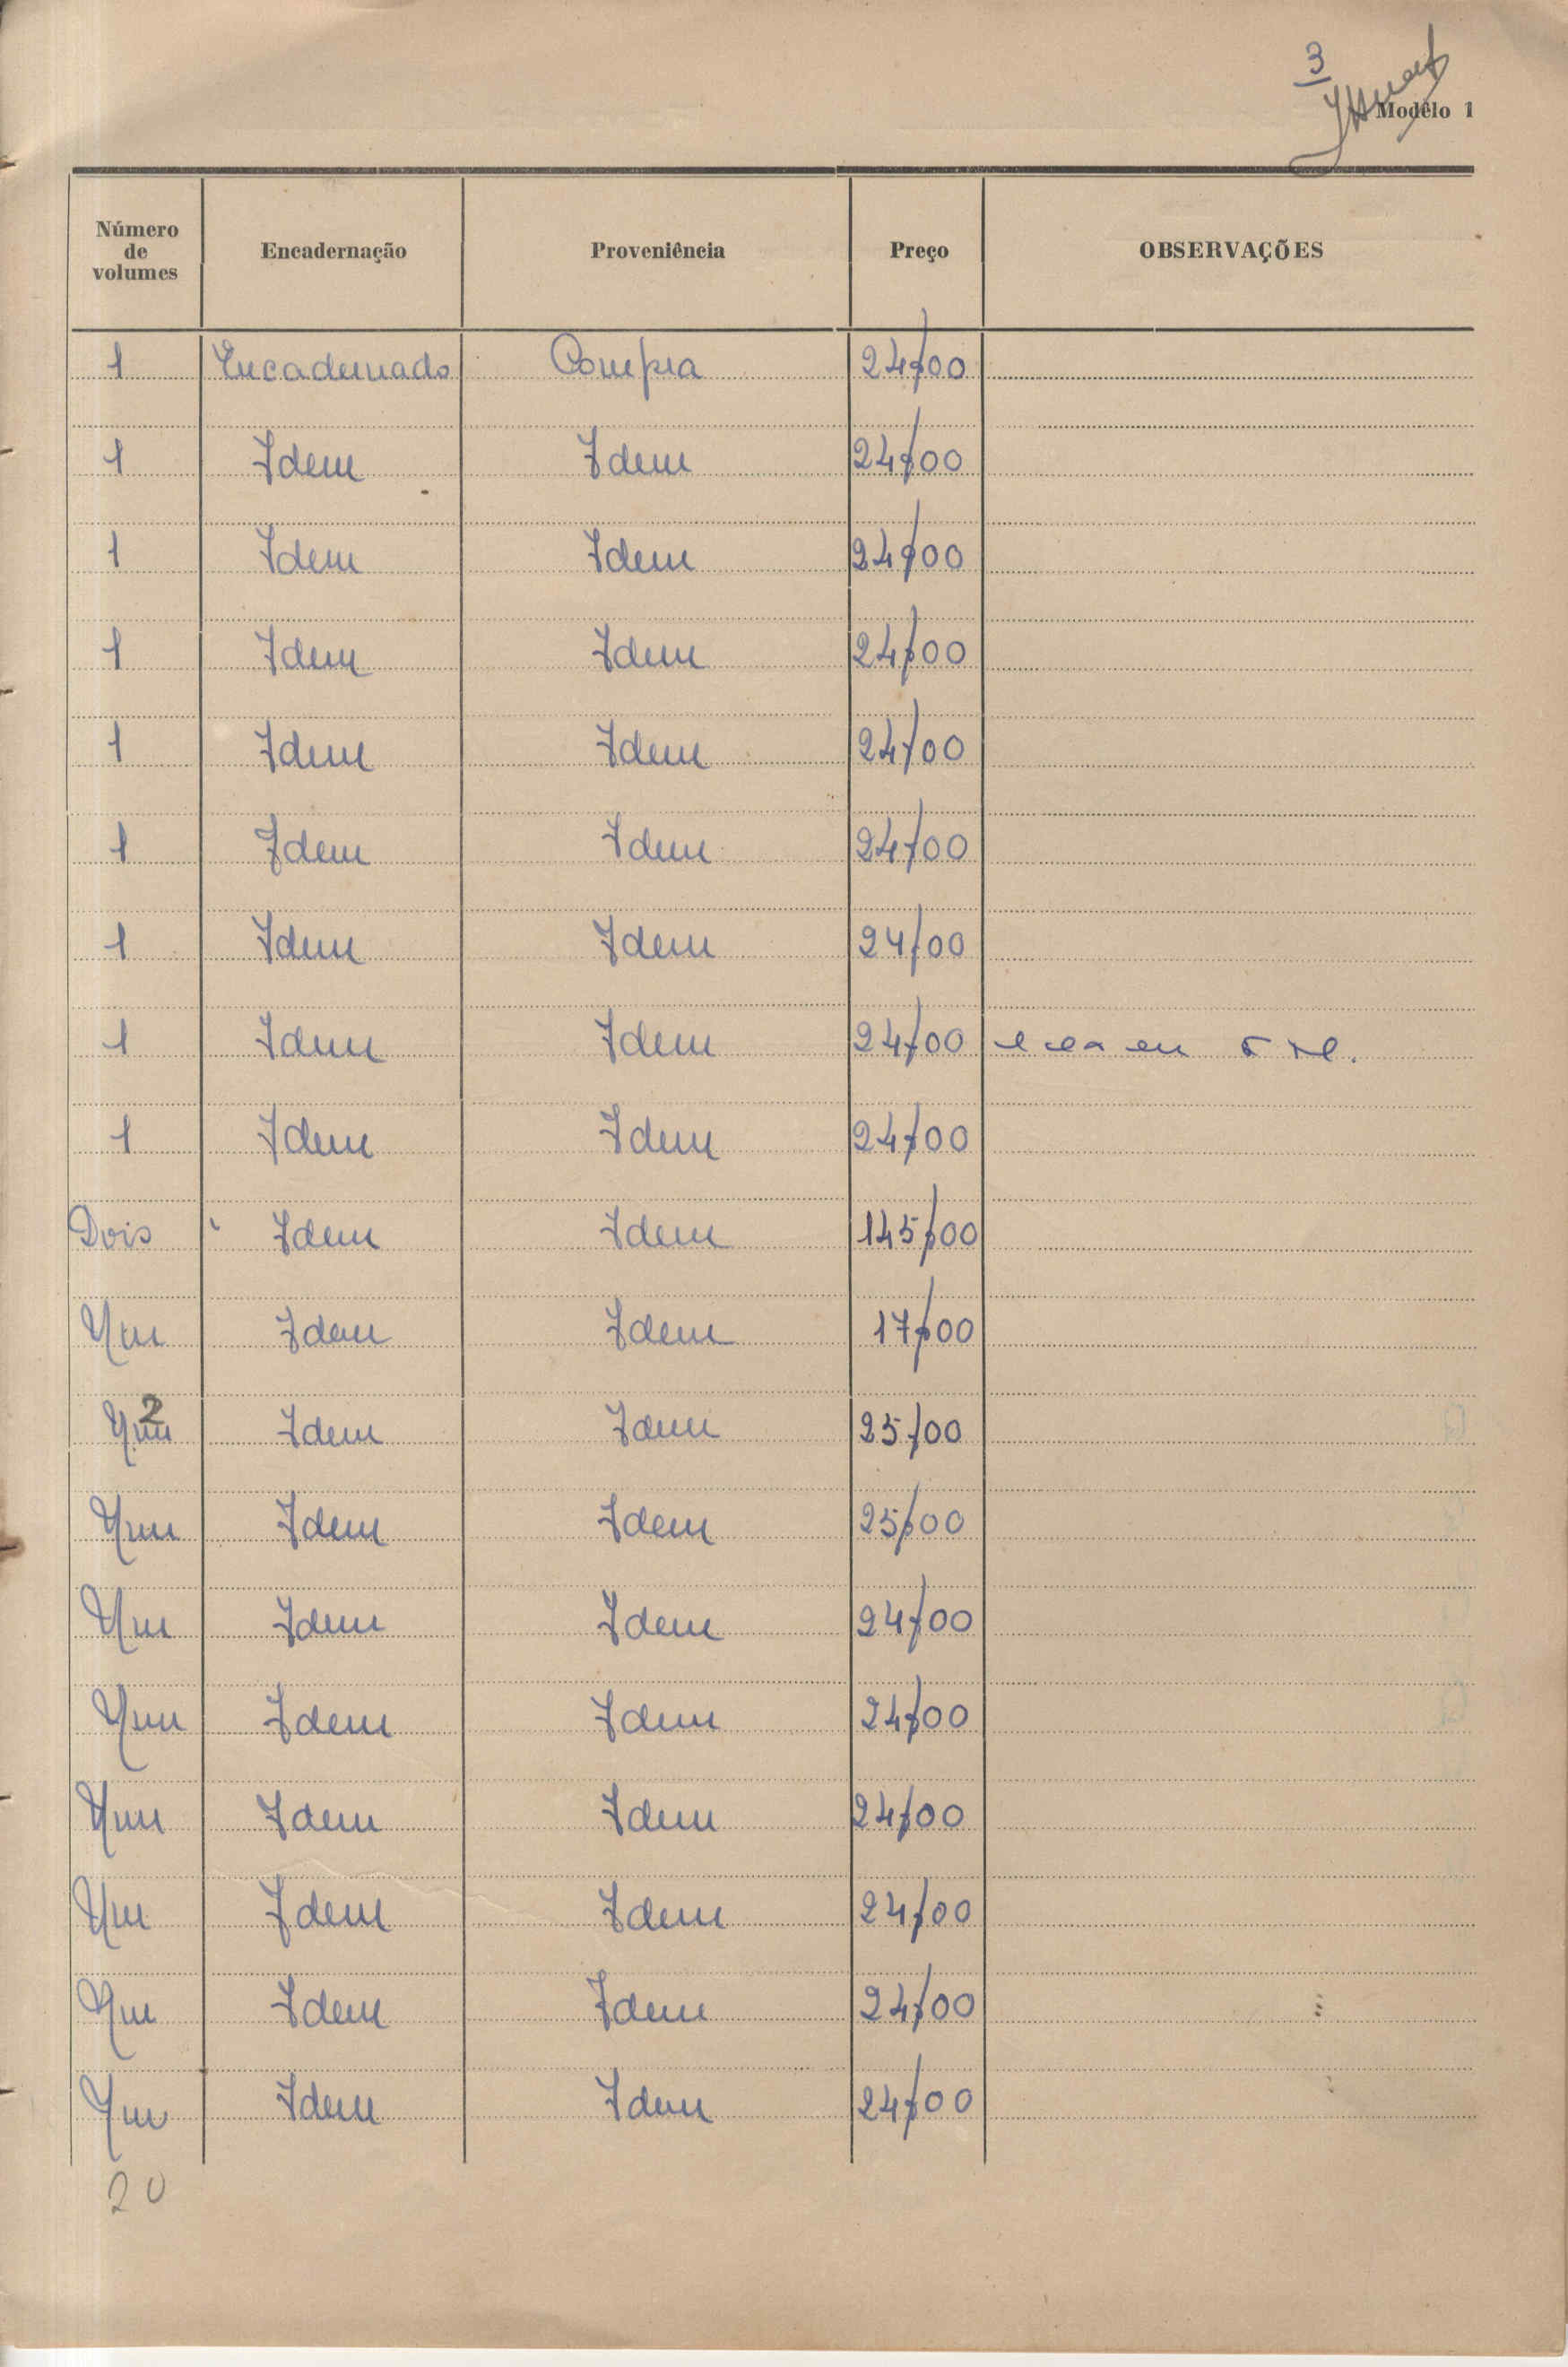 3
Modêlo 1
Número de volumes Encadernação Proveniência Preço OBSERVAÇÕES
1 Encadernado Compra 24$00
1 Idem Idem 24$00
1 Idem Idem 24$00
1 Idem Idem 24$00
1 Idem Idem 24$00
1 Idem Idem 24$00
1 Idem Idem 24$00
1 Idem Idem 24$00
1 Idem Idem 24$00
Dois Idem Idem 145$00
Um Idem Idem 17$00
2
Um Idem Idem 25$00
Um Idem Idem 25$00
Um Idem Idem 24$00
Um Idem Idem 24$00
Um Idem Idem 24$00
Um Idem Idem 24$00
Um Idem Idem 24$00
Um Idem Idem 24$00
20